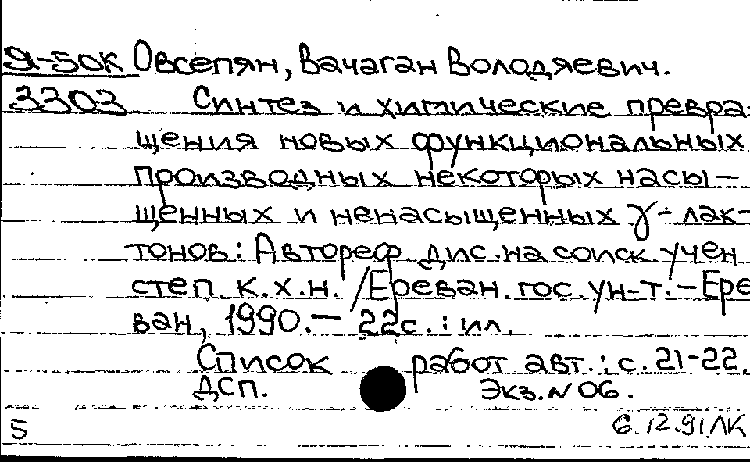 91-50К Овсепян, Вачаган Володяевич.
3303 Синтез и химические превра-
щения новых функциональных
производных некоторых насы-
щенных и ненасыщенных γ-лак-
тонов: Автореф. дис. на соиск. учен.
степ. к.х.н. /Ереван. гос. ун-т. - Ере
ван, 1990. - 22с.: ил.
Список работ авт.: с. 21-22.
ДСП. Экз. N 06.
5 6.12.91 ЛК